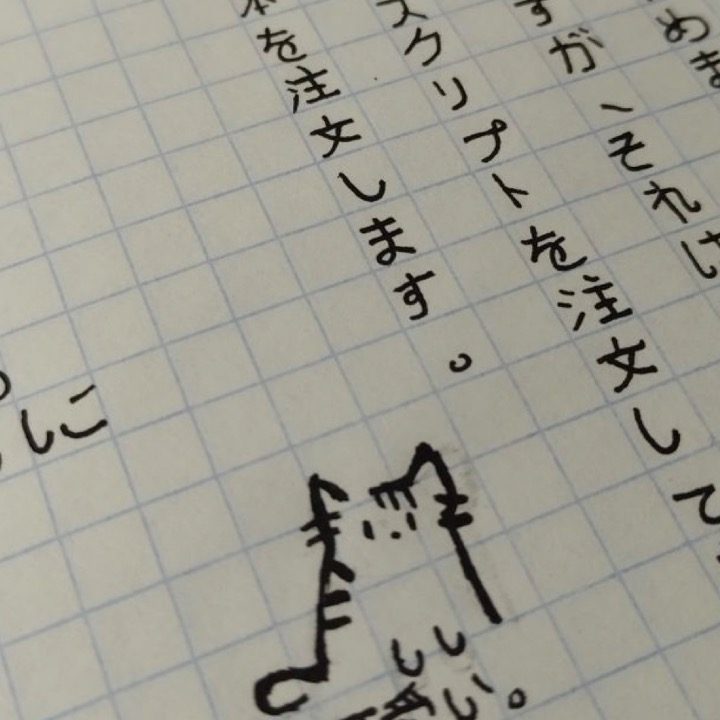 めま
すが、それは
スクリプトを注文して
本を注文します。
しに